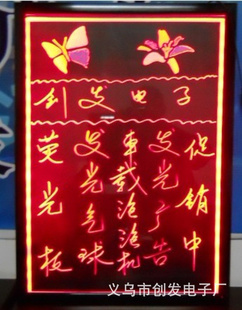 创发电子
荧光板
发光气球
车载
发光广告
促销中
义乌市创发电子厂